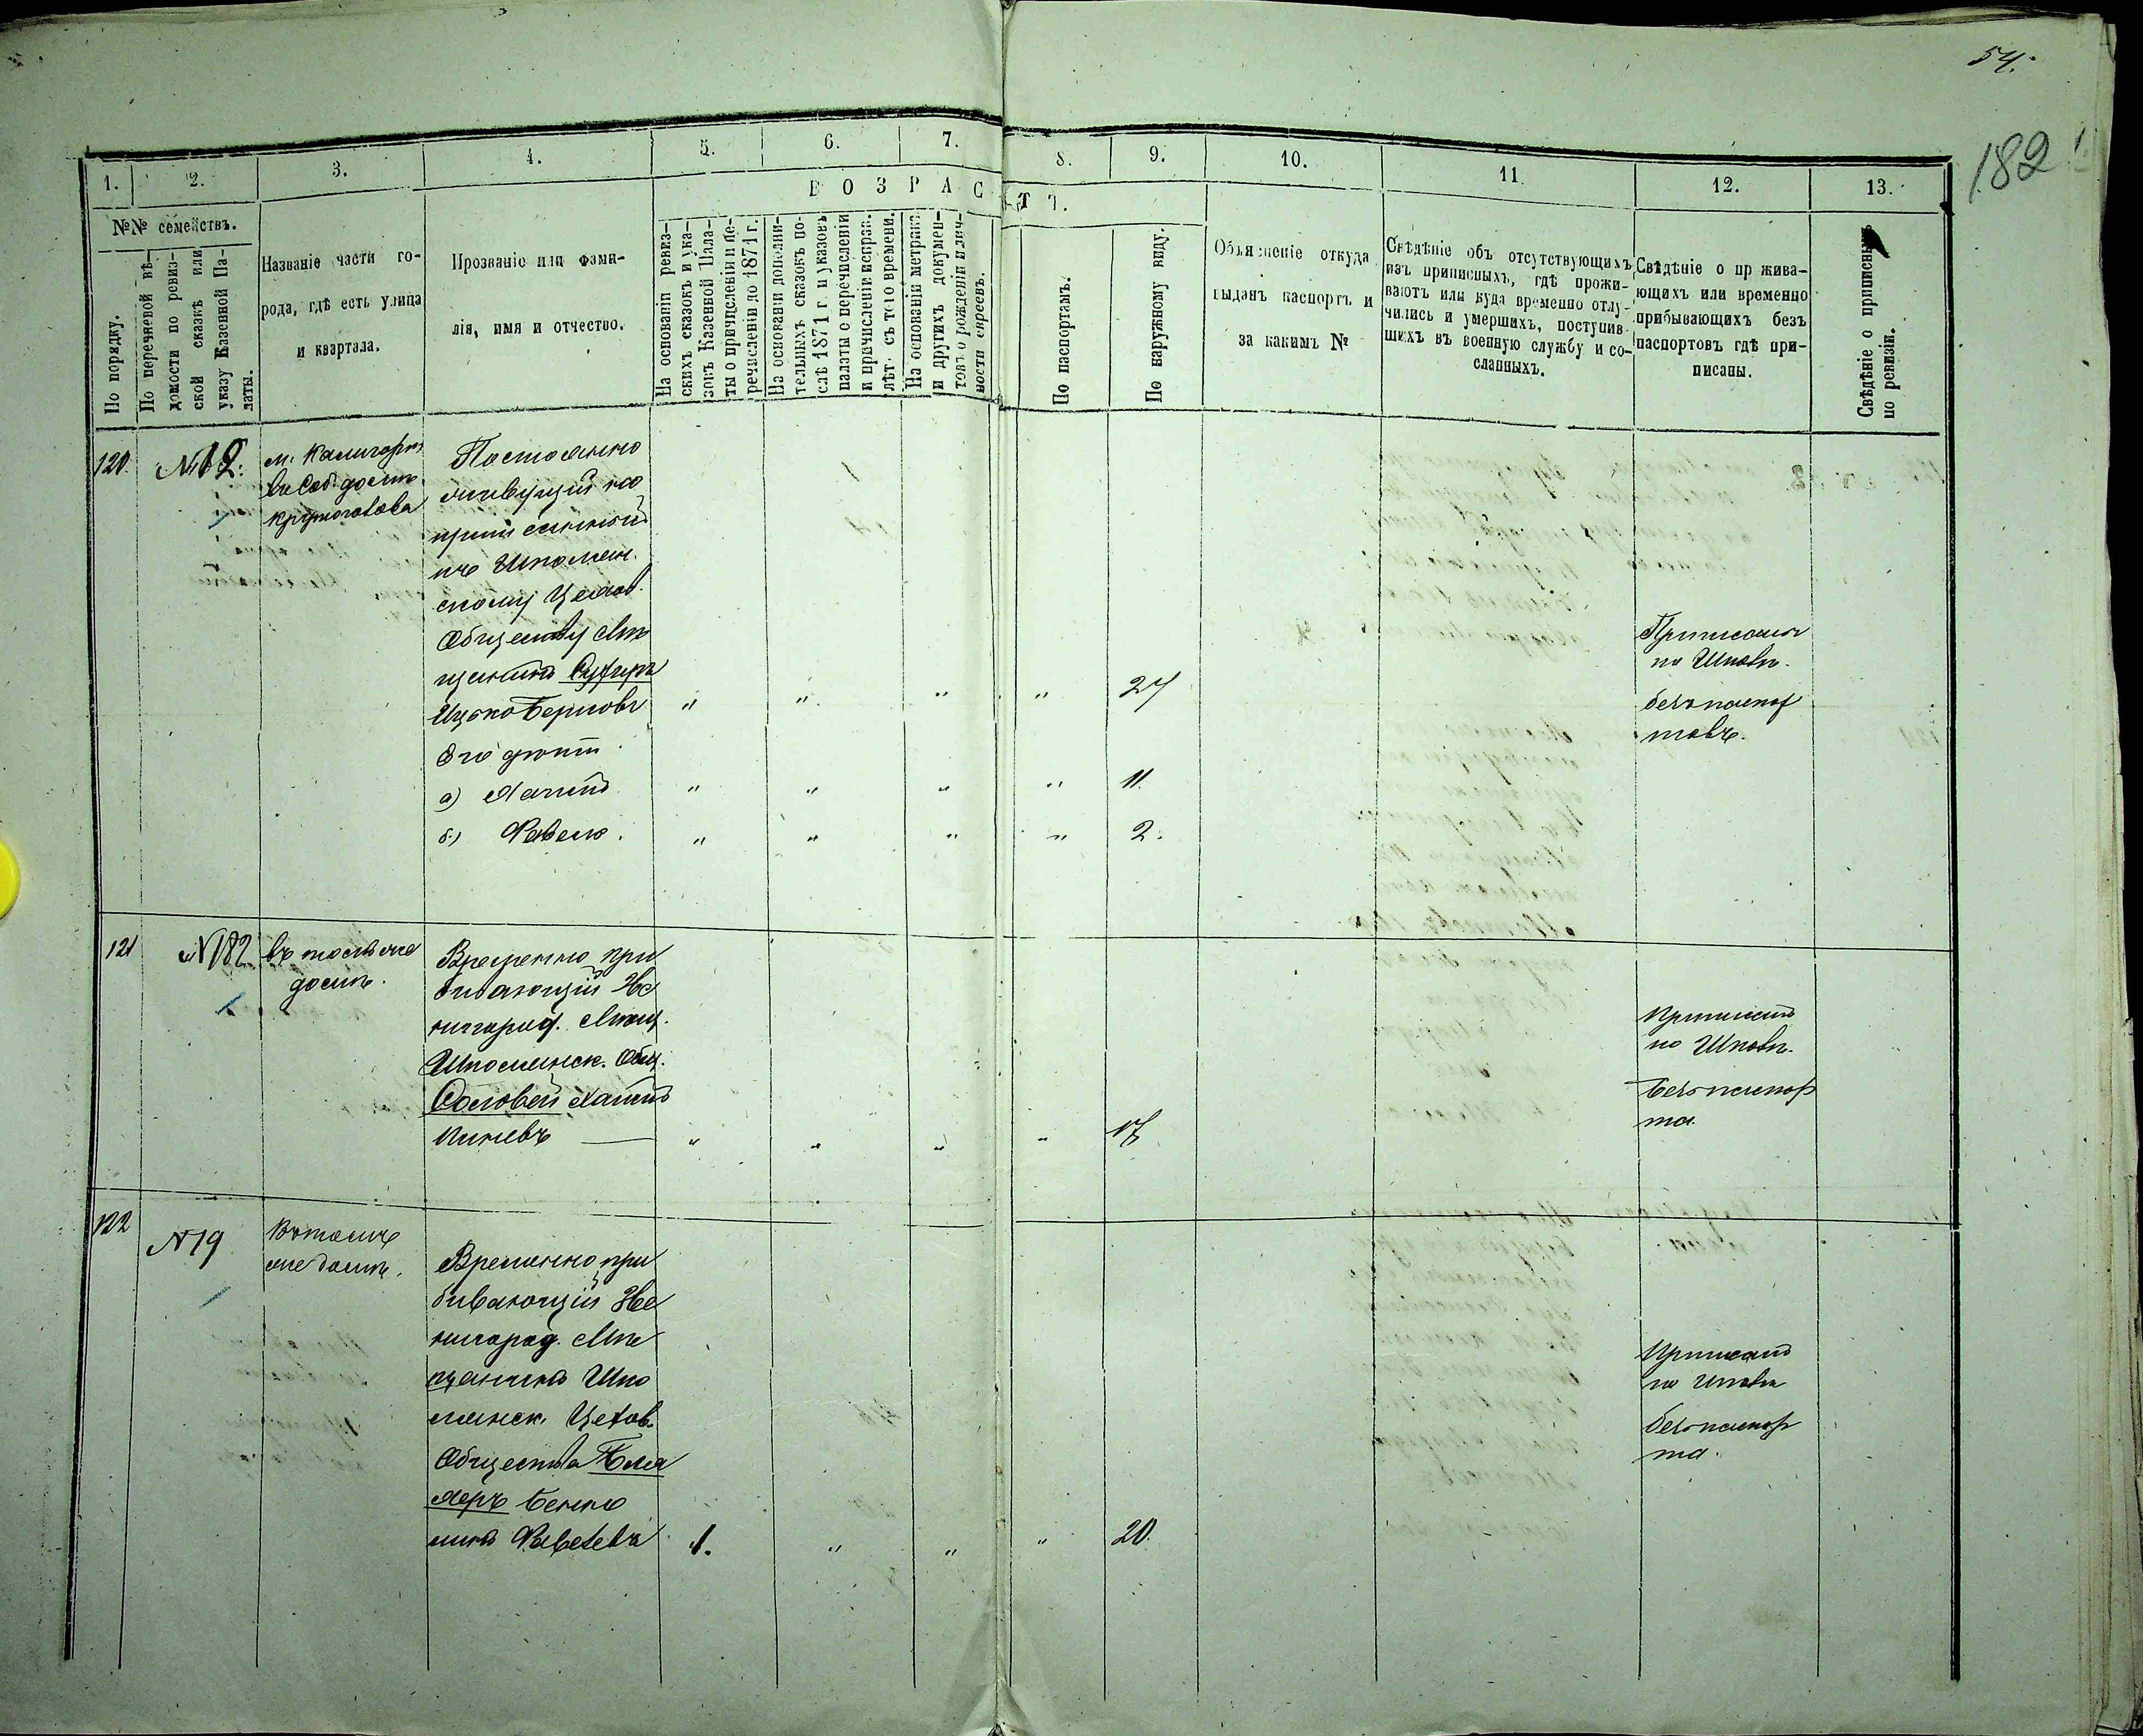 54.
182
1.
2.
3.
4.
5.
6.
7.
8.
9.
10.
11
12.
13.
ВОЗРАСТЪ.
№№ семействъ.
По порядку.
По перечневой вѣ-
домости по ревиз-
ской сказкѣ или
указу Казенной Па-
латы.
Названіе части го-
рода, гдѣ есть улица
и квартала.
Прозваніе или фами-
лія, имя и отчество.
На основаніи ревиз-
скихъ сказокъ и ука-
зовъ Казенной Пала-
ты о причисленіи и пе-
речисленіи до 1871 г.
На основаніи дополни-
тельныхъ сказокъ по-
слѣ 1871 г. и указовъ
палаты о перечисленіи
и причисленіе исправ.
лѣт. съ того времени.
На основаніи метрикъ
и другихъ докумен-
товъ о рожденіи и лич-
ности евреевъ.
По паспортамъ.
По наружному виду.
Объясненіе откуда
выданъ паспортъ и
за какимъ №
Свѣдѣніе объ отсутствующихъ
изъ приписныхъ, гдѣ прожи-
ваютъ или куда временно отлу-
чились и умершихъ, поступив-
шихъ въ военную службу и со-
сланныхъ.
Свѣдѣніе о прожива-
ющихъ или временно
прибывающихъ безъ
паспортовъ гдѣ при-
писаны.
Свѣдѣніе о приписныхъ
по ревизіи.
120. №12.
м.
домѣ
Постоянно
живущій но
приписанный
къ Шполян.
скому Цехов.
Обществу Мѣ
щанинъ
Ицько Берковъ " " " " 27
Его дѣти
а) " " " " 11.
б) Фавель. " " " " 2.
Приписаны
по Шполѣ.
безъ паспор
товъ.
121 №182. въ томъ же
домѣ.
Временно при
бивающій Зве
нигород. Мѣщ.
Шполянск. Общ.
Соловей Хаимъ
" " " " 17
Приписанъ
по Шполѣ.
безъ паспор
та.
122 №19 Въ томъ
же домѣ.
Временно при
бивающій Зве
нигород. Мѣ
щанинъ Шпо
лянск. Цехов.
Общества
Беньи
минъ 1. " " " 20.
Приписанъ
по Шполѣ
безъ паспор
та.